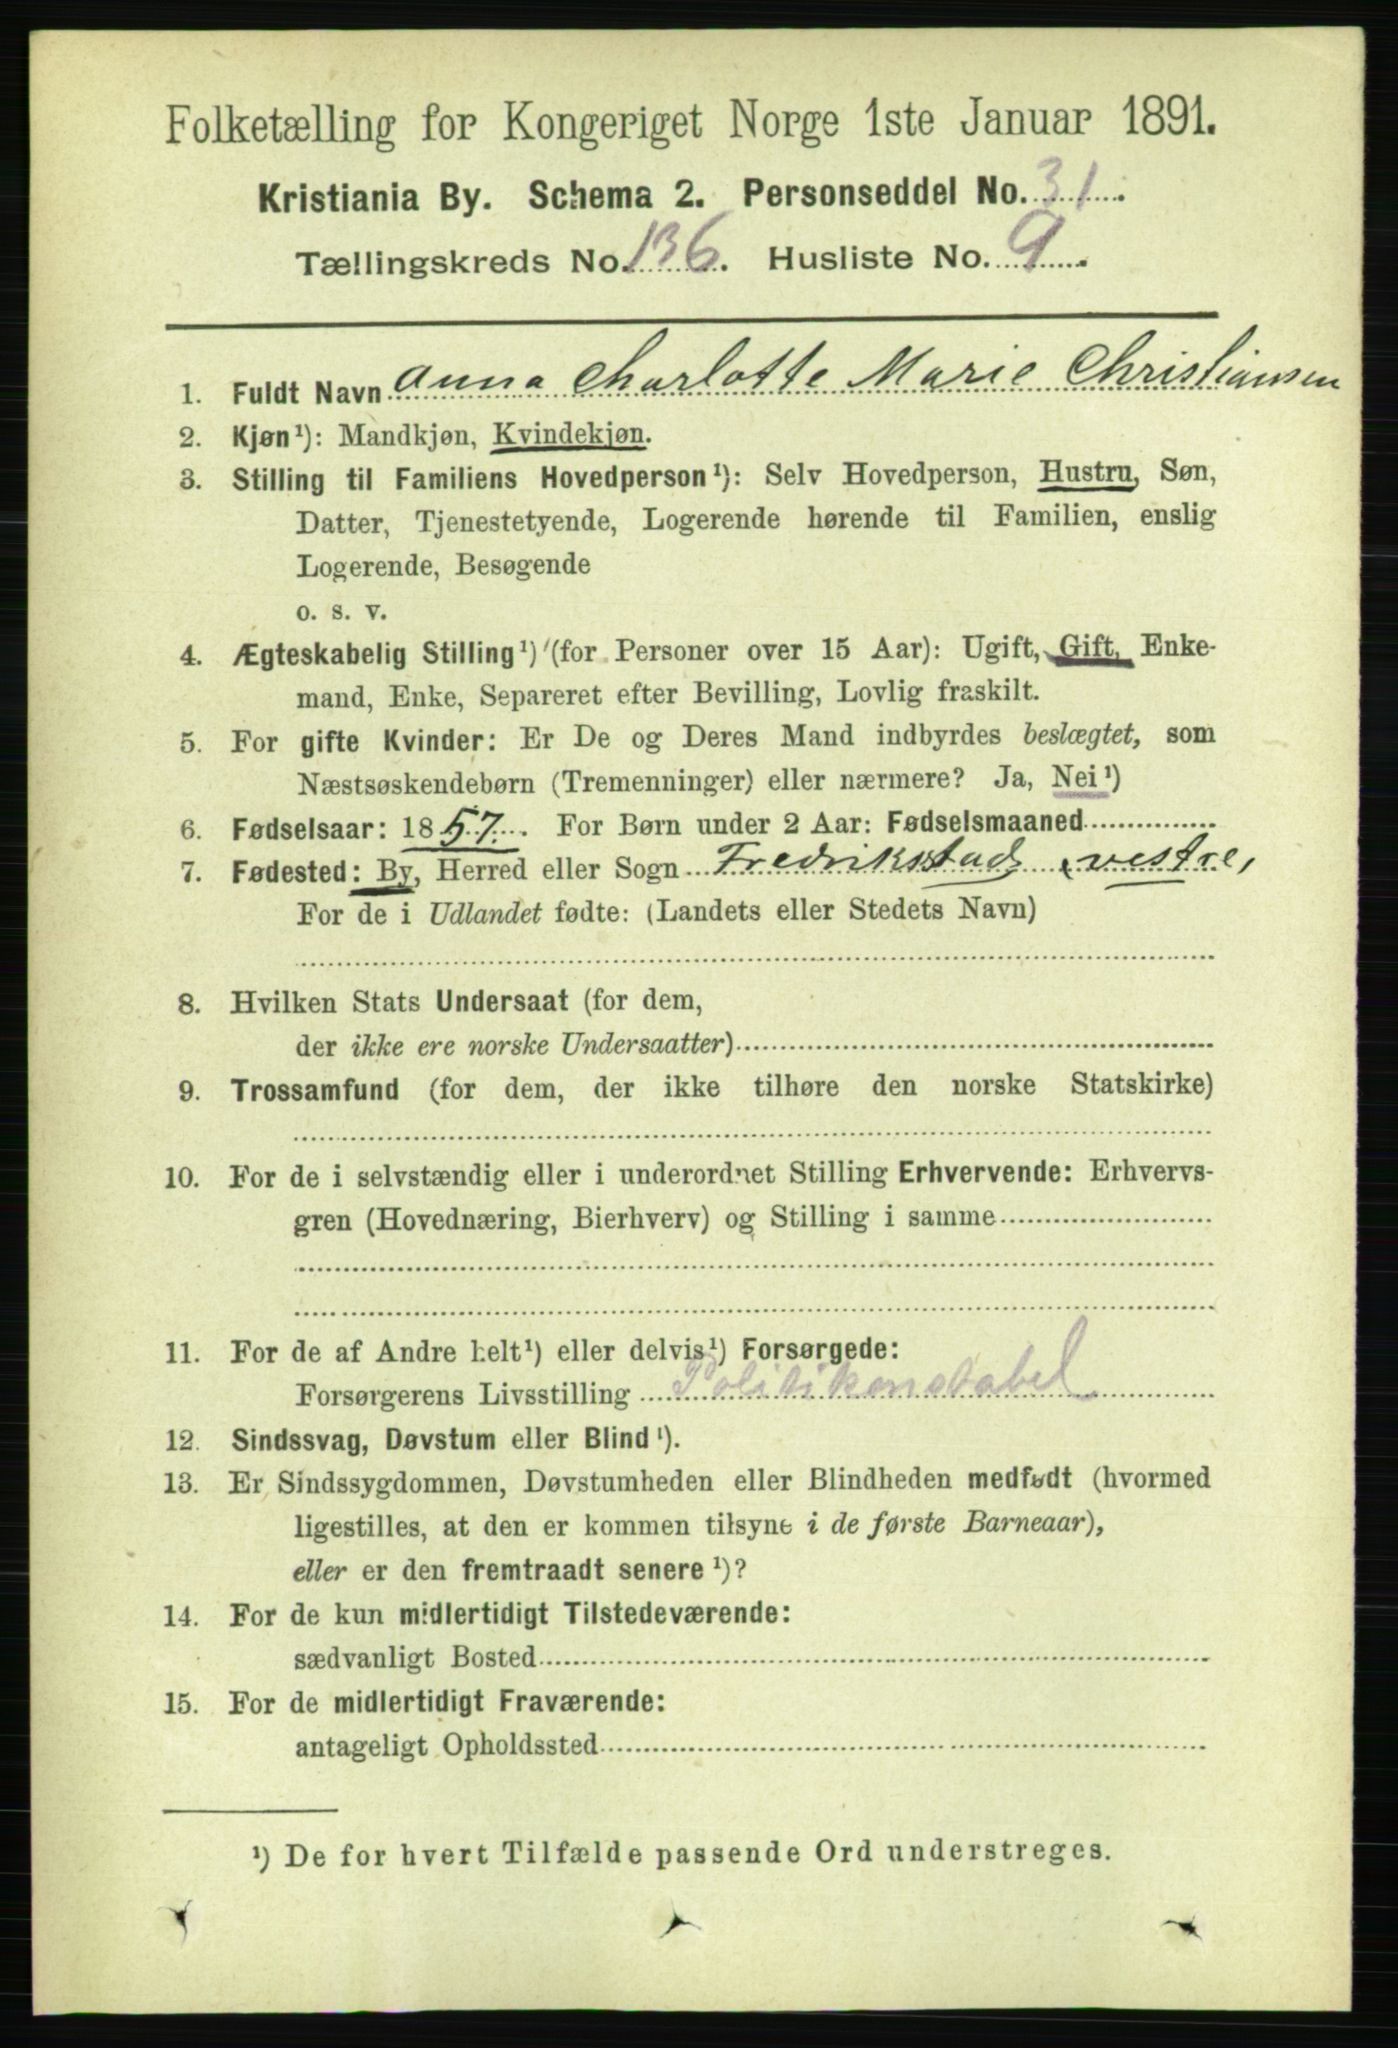 Folketælling for Kongeriget Norge 1ste Januar 1891.
Kristiania By. Schema 2. Personseddel No. 31.
Tællingskreds No. 136. Husliste No. 9.
1. Fuldt Navn Anna Charlotte Marie Christiansen
2. Kjøn¹): Mandkjøn, Kvindekjøn.
3. Stilling til Familiens Hovedperson¹): Selv Hovedperson, Hustru, Søn,
Datter, Tjenestetyende, Logerende hørende til Familien, enslig
Logerende, Besøgende
o. s. v.
4. Ægteskabelig Stilling¹) (for Personer over 15 Aar): Ugift, Gift, Enke-
mand, Enke, Separeret efter Bevilling, Lovlig fraskilt.
5. For gifte Kvinder: Er De og Deres Mand indbyrdes beslægtet, som
Næstsøskendebørn (Tremenninger) eller nærmere? Ja, Nei¹)
6. Fødselsaar: 1857. For Børn under 2 Aar: Fødselsmaaned
7. Fødested: By, Herred eller Sogn Fredrikstad, vestre,
For de i Udlandet fødte: (Landets eller Stedets Navn)
8. Hvilken Stats Undersaat (for dem,
der ikke ere norske Undersaatter)
9. Trossamfund (for dem, der ikke tilhøre den norske Statskirke)
10. For de i selvstændig eller i underordnet Stilling Erhvervende: Erhvervs-
gren (Hovednæring, Bierhverv) og Stilling i samme
11. For de af Andre helt¹) eller delvis¹) Forsørgede:
Forsørgerens Livsstilling Politikonstabel
12. Sindssvag, Døvstum eller Blind¹).
13. Er Sindssygdommen, Døvstumheden eller Blindheden medfødt (hvormed
ligestilles, at den er kommen tilsyne i de første Barneaar),
eller er den fremtraadt senere¹)?
14. For de kun midlertidigt Tilstedeværende:
sædvanligt Bosted
15. For de midlertidigt Fraværende:
antageligt Opholdssted
¹) De for hvert Tilfælde passende Ord understreges.